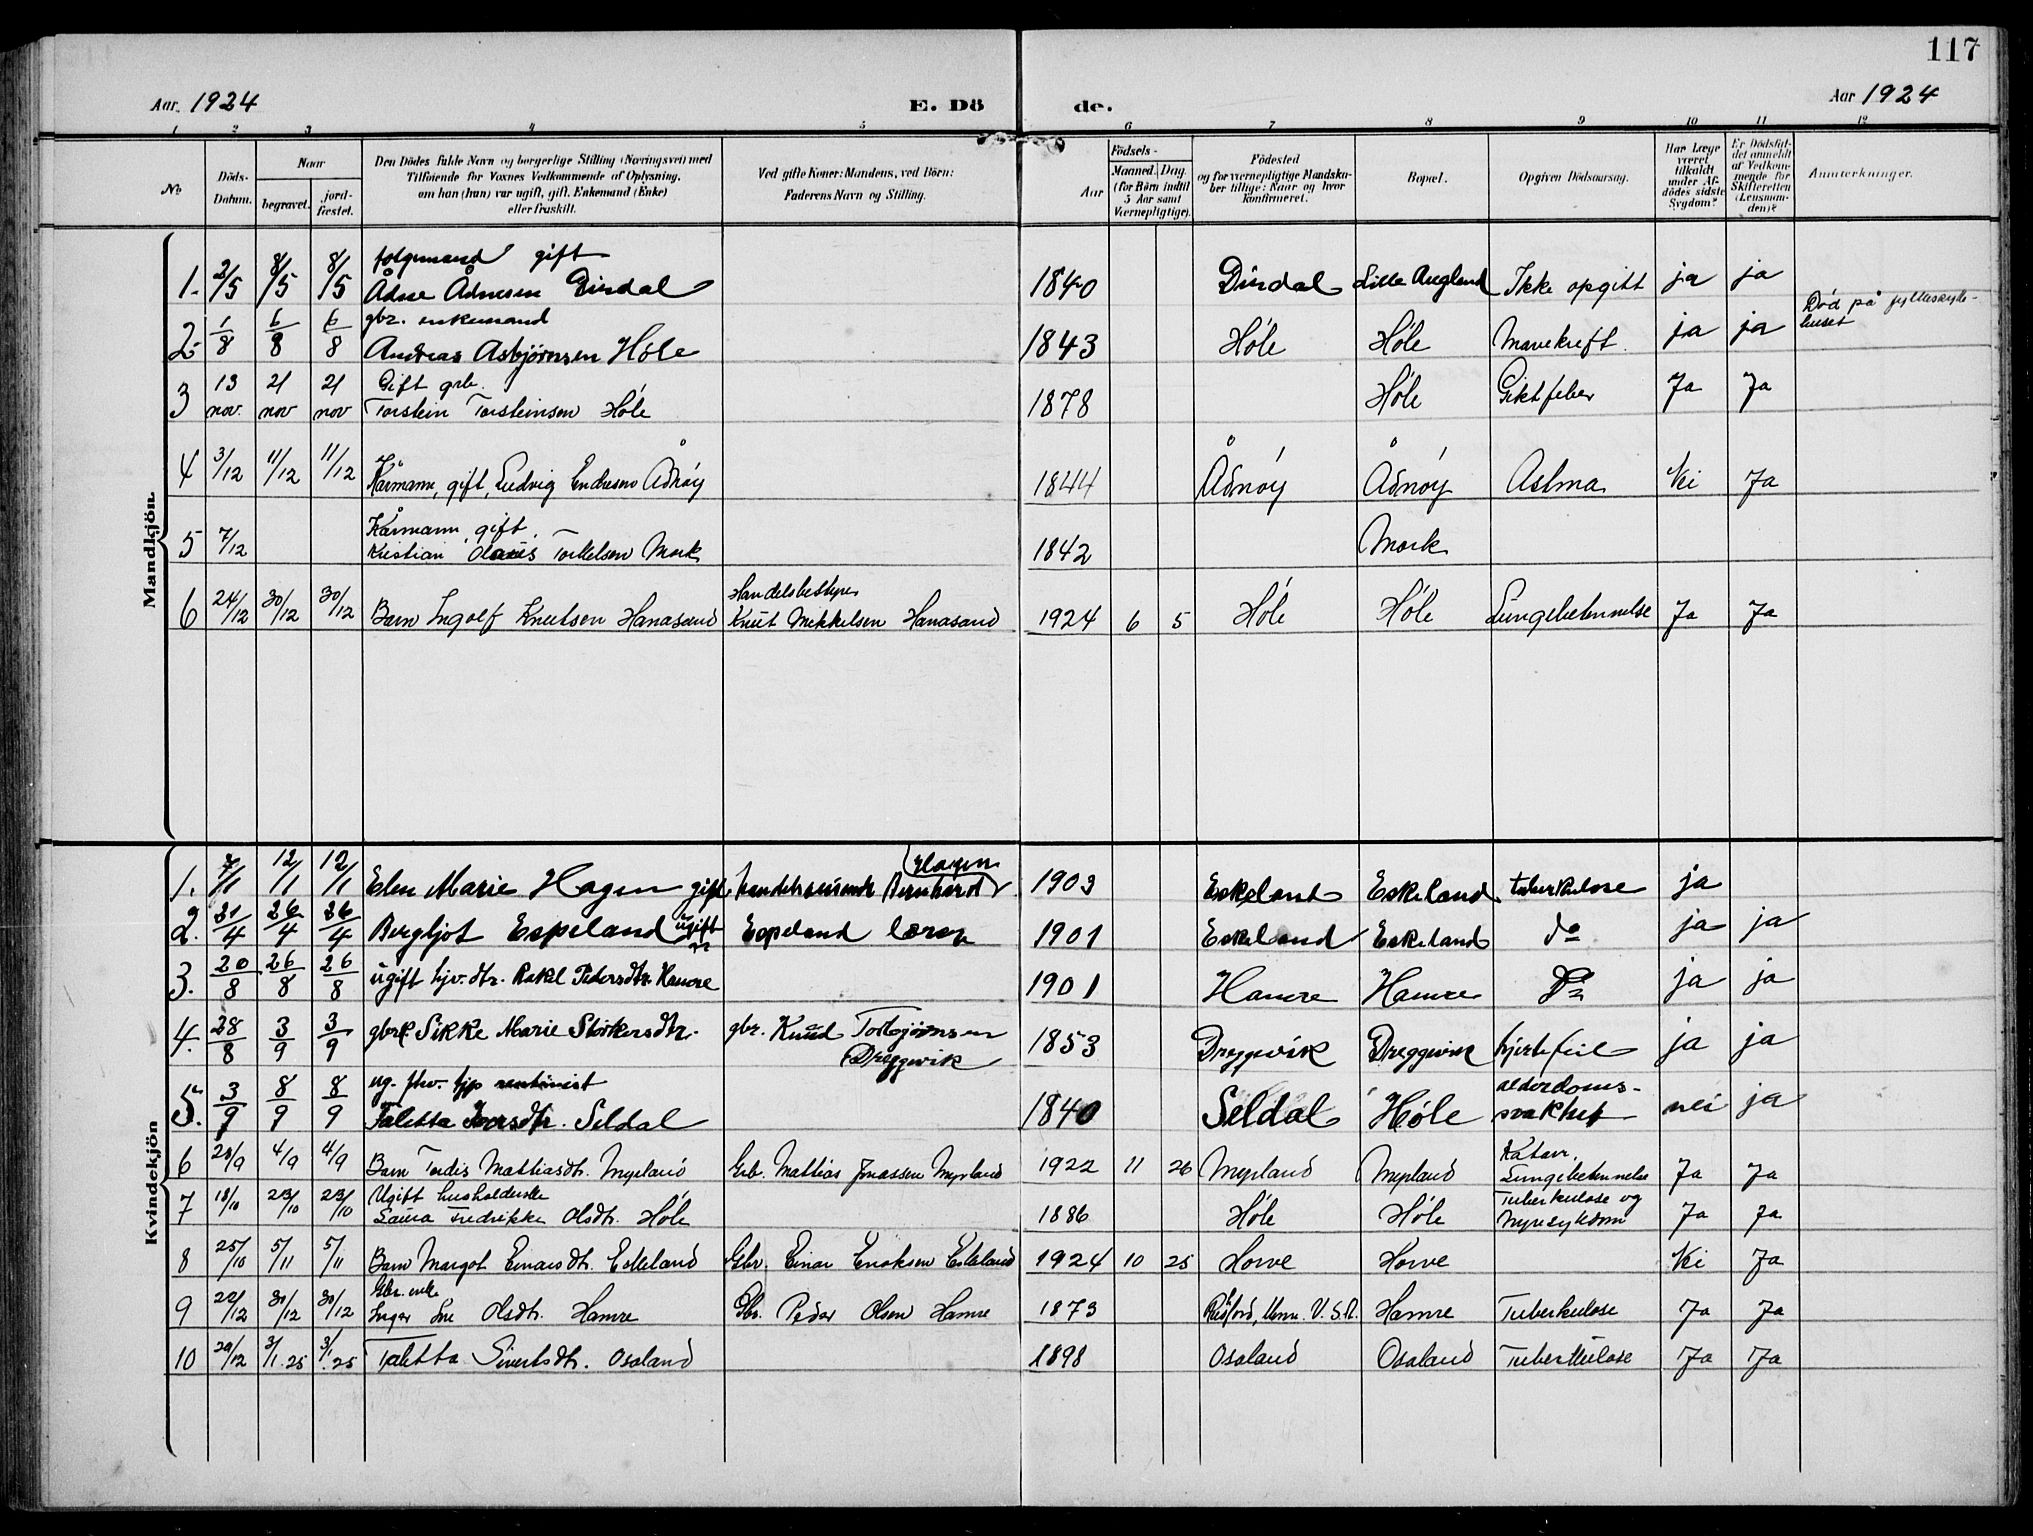 117
Aar 1924
E. Dö
de.
Aar 1924
1 2 3 4 5 6 7 8 9 10 11 12
No
Döds-
Datum.
Naar
begravet.
jord-
fæstet.
Den Dödes fulde Navn og borgerlige Stilling (Næringsvei) med
Tilföiende for Voxnes Vedkommende af Oplysning,
om han (hun) var ugift, gift, Enkemand (Enke)
eller fraskilt.
Ved gifte Koner: Mandens, ved Börn:
Faderens Navn og Stilling.
Födsels-
Aar
Maaned. Dag.
(for Börn indtil
5 Aar samt
Værnepligtige).
Födested
og for værnepligtige Mandska-
ber tillige: Naar og hvor
konfirmeret.
Bopæl.
Opgiven Dödsaarsag.
Har Læge
været
tilkaldt
under Af-
dödes sidste
Sygdom?
Er Dödsfal-
det anmeldt
af Vedkom-
mende for
Skifteretten
(Lensman-
den)?
Anmærkninger.
Mandkjön.
1. 2/5 8/5 8/5 folgemand gift
Ådne Ådnesen Dirdal 1840 Dirdal Lille Augland Ikke opgitt ja ja
2. 1/8 6/8 6/8 gbr. enkemand
Andreas Asbjørnsen Høle 1843 Høle Høle Mavekreft. ja ja Død på sykehuset
3 13 nov. 21 nov 21 nov Gift grb.
Torstein Torsteinsen Høle 1878 Høle Giktfeber Ja Ja
4 3/12 11/12 11/12 Kårmann, gift, Ludvig Endresen Ådnøy 1844 Ådnøy Ådnøy Astma Nei Ja
5 7/12 Kårmann, gift.
Kristian Olaus Torkelsen Mork 1842 Mork
6 24/12 30/12 30/12 Barn Ingolf Knutsen Hanasand Handelsbestyrer
Knut Mikkelsen Hanasand 1924 6 5 Høle Høle Lungebetennelse Ja Ja
Kvindekjön
1. 7/1 12/1 12/1 Elen Marie Hagen gift handelsreisende Bernhard Hagen 1903 Eskeland Eskeland tuberkulose ja
2. 21/4 26/4 26/4 Bergljot Espeland ugift Espeland lærer 1901 Eskeland Eskeland do ja ja
3. 20/8 26/8 26/8 ugift hjv. dtr. Rakel Pedersdtr. Hamre 1901 Hamre Hamre Do ja ja
4. 28/8 3/9 3/9 gbrk Sikke Marie Størkersdtr. gbr. Knud Torbjørnsen
Dreggevik 1853 Dreggevik Dreggevik hjertefeil ja ja
5. 3/9 8/9 8/9 ug. fhv. hjp rentenist
Taletta Iversdtr. Seldal 1840 Seldal Høle alderdoms-
svakhet nei ja
6 28/9 4/9 4/9 Barn Tordis Mattiasdtr. Myrland Grb. Mattias Jonassen Myrland 1922 11 26 Myrland Myrland Katarr.
Lungebetennelse Ja Ja
7 18/10 23/10 23/10 Ugift husholderske
Laura Fredrikke Olsdtr. Høle 1886 Høle Høle Tuberkulose og
nyresykdom Ja Ja
8 25/10 5/11 5/11 Barn Margot Einarsdtr. Eskeland Gbr. Einar Enoksen Eskeland 1924 10 25 Horve Horve Nei Ja
9 22/12 30/12 30/12 Gbr. enke
Inger Ine Olsdtr. Hamre Gbr. Peder Olsen Hamre 1873 Minn. U.S.A. Hamre Tuberkulose Ja Ja
10 29/12 3/1.25 3/1.25 Taletta Sivertsdtr. Osaland 1898 Osaland Osaland Tuberkulose Ja Ja